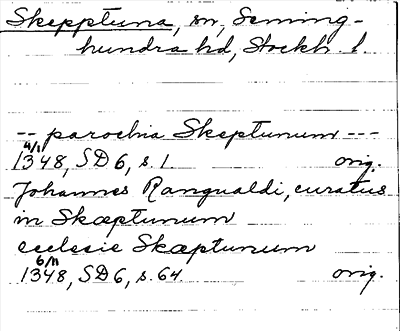 Skepptuna, sn, Seming-
hundra hd, Stockh. l.
-- parochia Skeptunum ---
4/1
1348, SD 6, s. 1 orig.
Johannes Rangualdi, curatus
in Skæptunum
ecclesie Skæptunum
6/11
1348, SD 6, s. 64 orig.